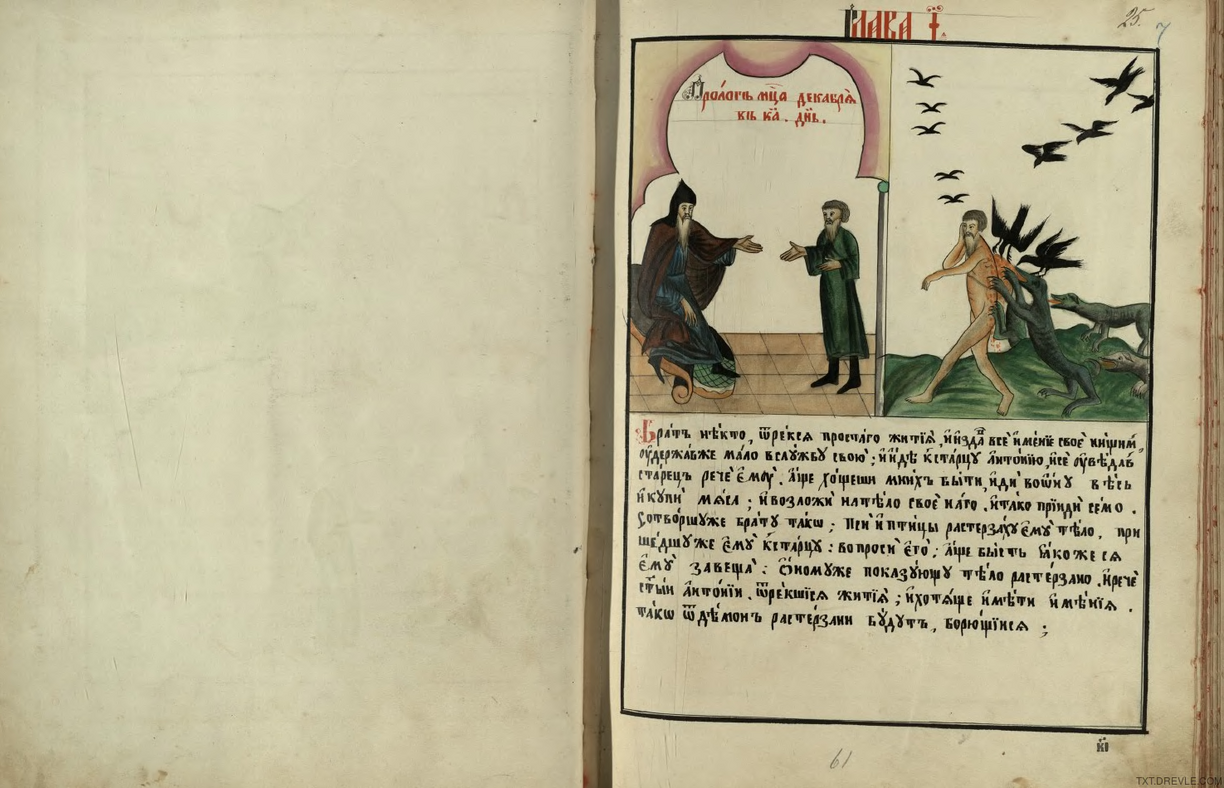 Глава І҃.
25.
7
Проло́гъ мц҃а декабрѧ̀
въ ка҃. дн҃ь.
Бра́тъ нѣ́кто, ѿре́ксѧ проста́го житїѧ̀, и҆ и҆зда̀ всѐ и҆мѣ́нїе своѐ ни́щим,
ᲂу҆держа́вже ма́ло в слꙋ́жбꙋ свою̀; и҆ и҆́де к ста́рцꙋ А҆нто́нїю, и҆ сѐ ᲂу҆вѣ́давъ
ста́рецъ речѐ є҆мꙋ̀. а҆́ще хо́щеши мни́хъ бы́ти, и҆дѝ во ѻ҆́нꙋ ве́сь
и҆ кꙋпѝ мѧ́са; и҆ возложѝ на тѣ́ло своѐ на́го. и҆ та́кѡ прїидѝ сѣ́мо.
Сотво́ршꙋже бра́тꙋ та́кѡ; пси̑ и҆ пти́цы растерза́хꙋ є҆мꙋ̀ тѣ́ло, при
ше́дшꙋ же є҆мꙋ̀ к ста́рцꙋ: вопросѝ є҆го̀; а҆́ще бы́сть ꙗ҆́коже сѧ
є҆мꙋ̀ завеща̀: Ѻ҆́номꙋже показꙋ́ющꙋ тѣ́ло расте́рзано. и҆ речѐ
ст҃ы́й А҆нто́нїи. ѿре́кшїисѧ житїѧ̀; и҆ хотѧ́ще и҆мѣ́ти и҆мѣ́нїѧ.
та́кѡ ѿ де́монъ расте́рзани бꙋ́дꙋтъ, борю́щїисѧ;
61
TXT.DREVLE.COM